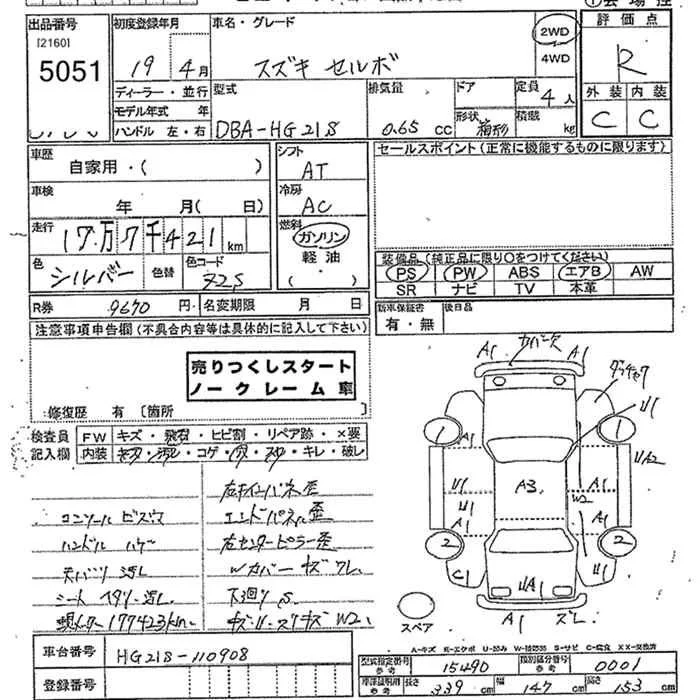 出品番号 [2160] 5051
初度登録年月 19 4月
車名・グレード スズキ セルボ
2WD
4WD
評価点 R
外装 内装
C C
ディーラー・並行
モデル年式 年
ハンドル 左・右
型式 DBA-HG21S
排気量 0.65 cc
ドア
形状 箱形
定員 4人
積載 kg
車歴 自家用・( )
車検 年 月( 日)
走行 17万7千421 km
色 シルバー 色替
色コード Z2S
シフト AT
冷房 AC
燃料 ガソリン
軽油
( )
セールスポイント(正常に機能するものに限ります)
装備品(純正品に限り○をつけてください)
PS PW ABS エアB AW
SR ナビ TV 本革
R券 9670 円
名変期限 月 日
新車保証書 有・無
後日品
注意事項申告欄(不具合内容等は具体的に記入して下さい)
売りつくしスタート
ノークレーム 車
修復歴 有 〔箇所
検査員記入欄
FW キズ・飛石・ヒビ割・リペア跡・×要
内装 コゲ・穴・キレ・破レ
コンソール ビス穴
ハンドル ハゲ
天バリ 汚レ
シート ヘタリ・汚レ
現メーター 177423km
エンドパネル歪
右センターピラー歪
Wカバー キズ ワレ
下回り S
A1 カバー欠 A1
1 A1 1 U1
A3
U1 U1 A1
W2 A1 UA2
2 C1 2 U1
UA1
A1 ズレ
スペア
A-キズ E-エクボ U-凹み W-補修跡 S-サビ C-腐食 XX-交換済
車台番号 HG21S-110908
登録番号
型式指定番号 参考 15490
類別区分番号 参考 0001
車庫証明用 参考 長さ 339 cm 幅 147 cm 高さ 153 cm